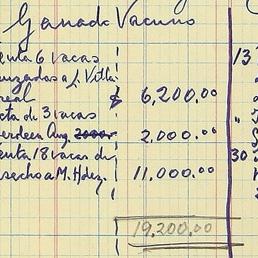 Ganado Vacuno
enta 6 vacas 13
uzadas a J. Villa
real $ 6,200.00
cta de 3 vacas "
berdeen Ang. 2.000.00
enta 18 vacas de 30
esecho a M. Hdez. 11.000.00
19,200.00